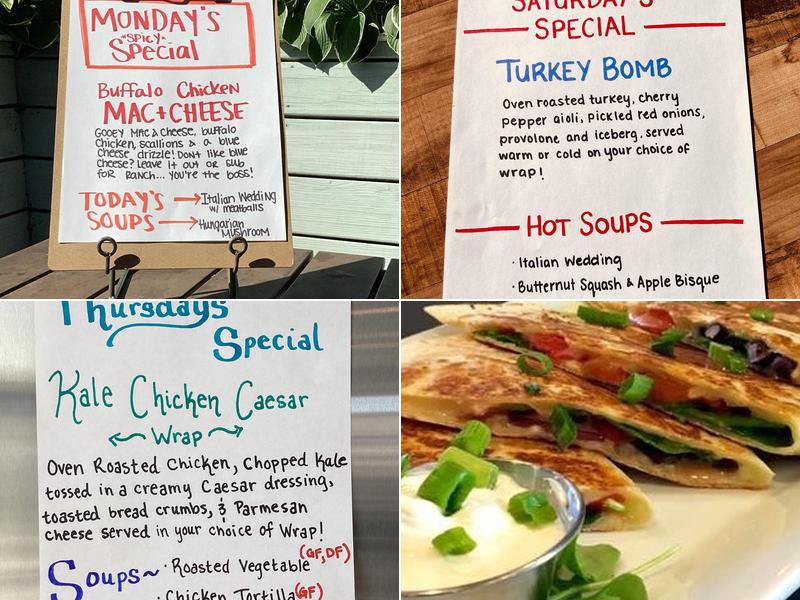 MONDAY'S
*SPICY*
Special
Buffalo Chicken
MAC+CHEESE
GOOEY MAC & CHEESE, BUFFALO
CHICKEN, SCALLIONS & A BLUE
CHEESE DRIZZLE! DON'T LIKE BLUE
CHEESE? LEAVE IT OUT OR SUB
FOR RANCH... YOU'RE THE BOSS!
TODAY'S → Italian Wedding
w/ meatballs
SOUPS → Hungarian
Mushroom
SATURDAY'S
SPECIAL
TURKEY BOMB
Oven roasted turkey, cherry
pepper aioli, pickled red onions,
provolone and iceberg. served
warm or cold on your choice of
wrap!
HOT SOUPS
· Italian Wedding
· Butternut Squash & Apple Bisque
Thursdays
Special
Kale Chicken Caesar
Wrap
Oven Roasted Chicken, Chopped Kale
tossed in a creamy Caesar dressing,
toasted bread crumbs, & Parmesan
cheese served in your choice of Wrap!
(GF, DF)
Soups~ · Roasted Vegetable
· Chicken Tortilla (GF)